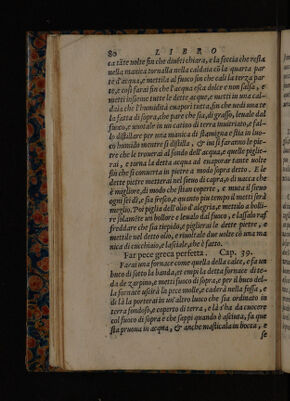 80 LIBRO
ca tãte uolte fin che diuẽti chiara, e la feccia che resta
nella manica tornalla nella caldaia cõ la quarta par
te d'acqua, e mettila al fuoco fin che cali la terza par
te, e così farai fin che l'acqua esca dolce e non salsa, e
metti insieme tutte le dette acque, e metti in una cal-
daia che l'humidità euapori tutta, fin che uedi una te
la fatta di sopra, che pare che sia, di grasso, leualo dal
fuoco, e uuotalo in un catino di terra inuitriato, e fal-
lo distillare per una manica di stamigna e stia in luo-
co humido mentre si distilla, & iui si faranno le pie-
tre che le trouerai al fondo dell'acqua, quelle piglie-
rai, e torna le detta acqua ad euaporar tante uolte
fin che si conuerta in pietre a modo sopra detto. E le
dette pietre metterai nel sieno di capra, o di uaca che
è migliore, di modo che stian coperte, e muta il sieuo
ogni sei dì, e sia fresco, e quanto piu tempo ui metti sarà
meglio. Poi piglia dell'olio d'alegria, e mettilo a bolli-
re solamẽte un bollore e leualo dal fuoco, e lassalo raf
freddare che sia tiepido, e piglierai le dette pietre, e
mettile nel detto olio, e riuoltale due uolte cõ una ma
nica di cucchiaio, e lascialo, che è fatto.
Far pece greca perfetta. Cap. 39.
Farai una fornace come quella della calce, e fa un
buco di sotto la banda, et empi la detta fornace di te-
da de zarpino, e metti fuoco di sopra, e per il buco del-
la fornace uscirà la pece molle, e caderà nella fossa, e
di là la porterai in un'altro luoco che sia ordinato in
terra fondoso, e coperto di terra, e là s'ha da cuocere
col fuoco di sopra e che sappi quando è asciuta, fa que
sta pruoua in acqua, & anche masticala in bocca, e
se